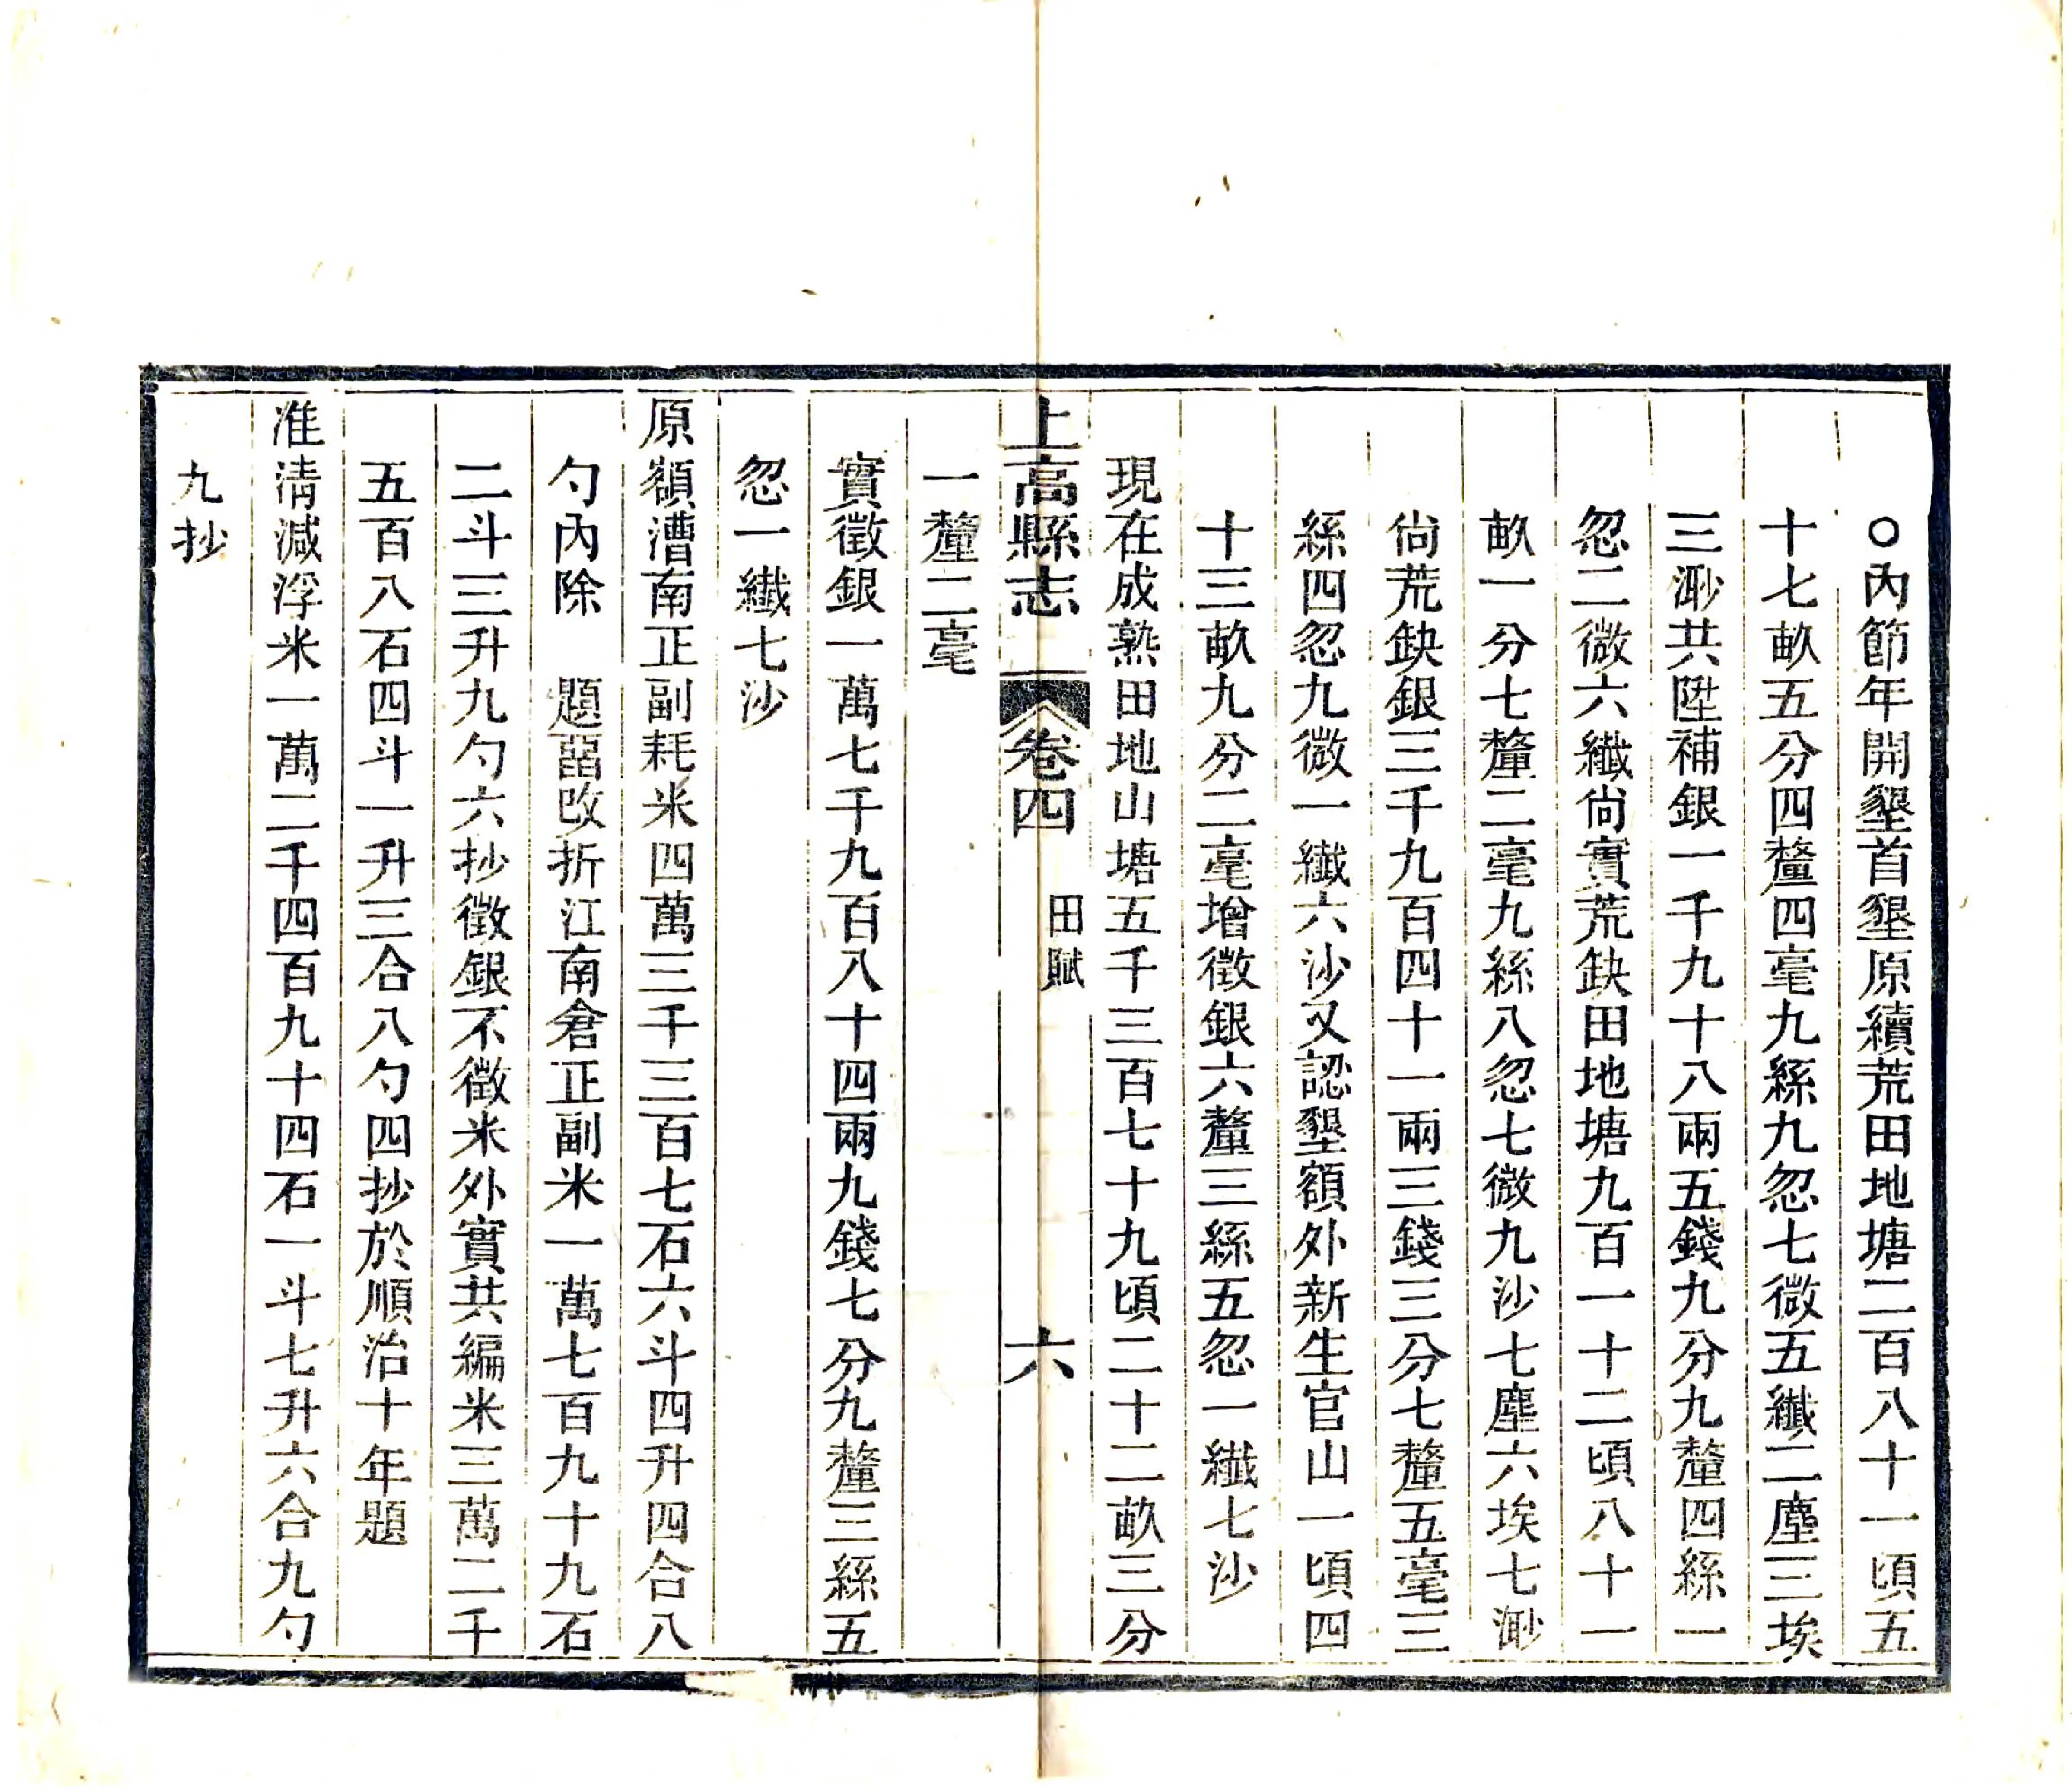 ○內節年開墾首墾原續荒田地塘二百八十一頃五
十七畝五分四釐四毫九絲九忽七微五纖二塵三埃
三渺共陞補銀一千九十八兩五錢九分九釐四絲一
忽二微六纖尙實荒缺田地塘九百一十二頃八十一
畝一分七釐二毫九絲八忽七微九沙七塵六埃七渺
尙荒缺銀三千九百四十一兩三錢三分七釐五毫三
絲四忽九微一纖六沙又認墾額外新生官山一頃四
十三畝九分二毫增徵銀六釐三絲五忽一纖七沙
現在成熟田地山塘五千三百七十九頃二十二畝三分
一釐二毫
上高縣志 卷四 田賦 六
實徵銀一萬七千九百八十四兩九錢七分九釐三絲五
忽一纖七沙
原額漕南正副耗米四萬三千三百七石六斗四升四合八
勺內除 題畱改折江南倉正副米一萬七百九十九石
二斗三升九勺六抄徵銀不徵米外實共編米三萬二千
五百八石四斗一升三合八勺四抄於順治十年題
准清減浮米一萬二千四百九十四石一斗七升六合九勺
九抄